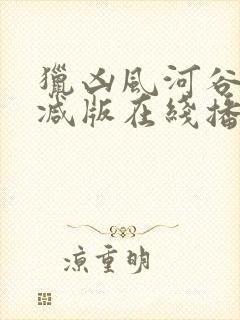 獵凶風河谷
減版在綫播
涼重明